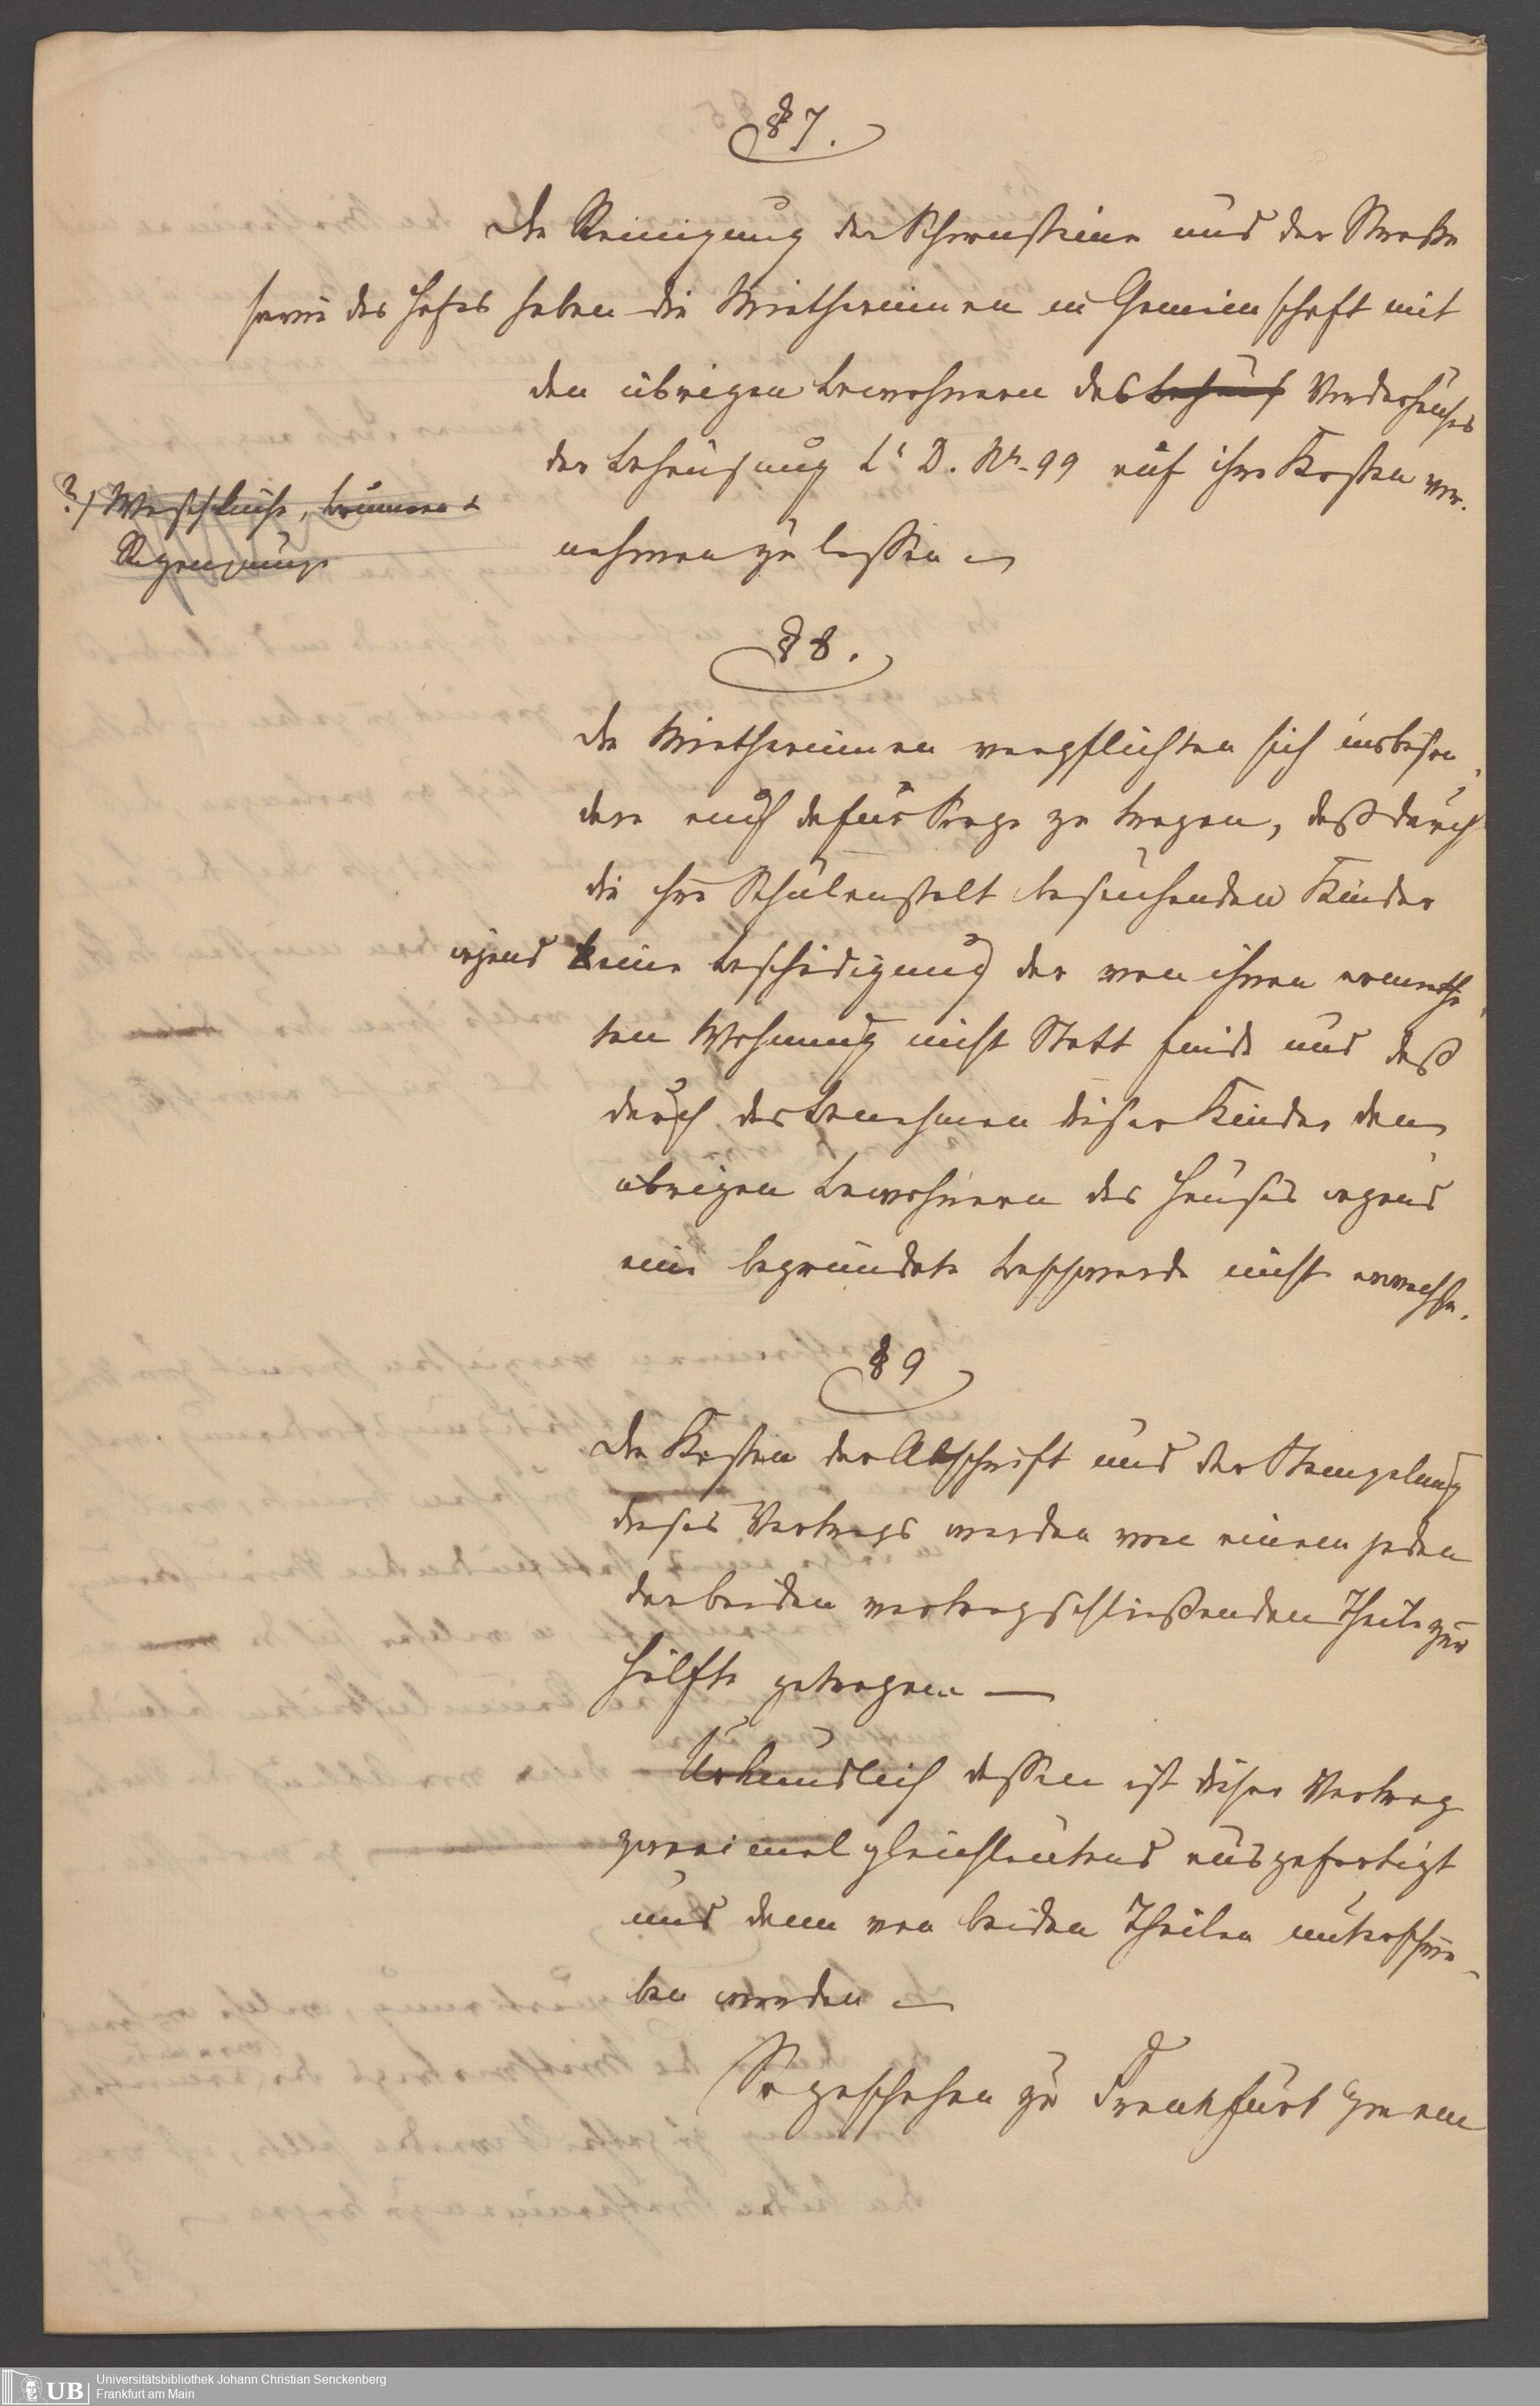 § 7.
Die Reinigung der Schornsteine und der Straße
sowie des Hofes haben die Mietherinnen in Gemeinschaft mit
den übrigen Bewohnern des Behaus Vorderhauses
der Behausung Lr D. No. 99 auf ihre Kosten vor-
nehmen zu lassen
?) Waschküche, Brunnen &
§ 8.
Die Mietherinnen verpflichten sich insbeson-
dere auch dafür Sorge zu tragen, daß durch
die ihre Schulanstalt besuchenden Kinder
irgend eine Beschädigung der von ihnen ermiethe-
ten Wohnung nicht Statt finde und daß
durch das Benehmen dieser Kinder den
übrigen Bewohnern des Hauses irgend
eine begründete Beschwerde nicht erwachse.
§ 9
Die Kosten der Abschrift und der Stempelung
dieses Vertrags werden von einem jeden
der beiden vertragschließenden Theile zur
Hälfte getragen —
Urkundlich dessen ist dieser Vertrag
zweimal gleichlautend ausgefertigt
und dann von beiden Theilen unterschrie-
ben worden —
So geschehen zu Frankfurt am
UB
Universitätsbibliothek Johann Christian Senckenberg
Frankfurt am Main